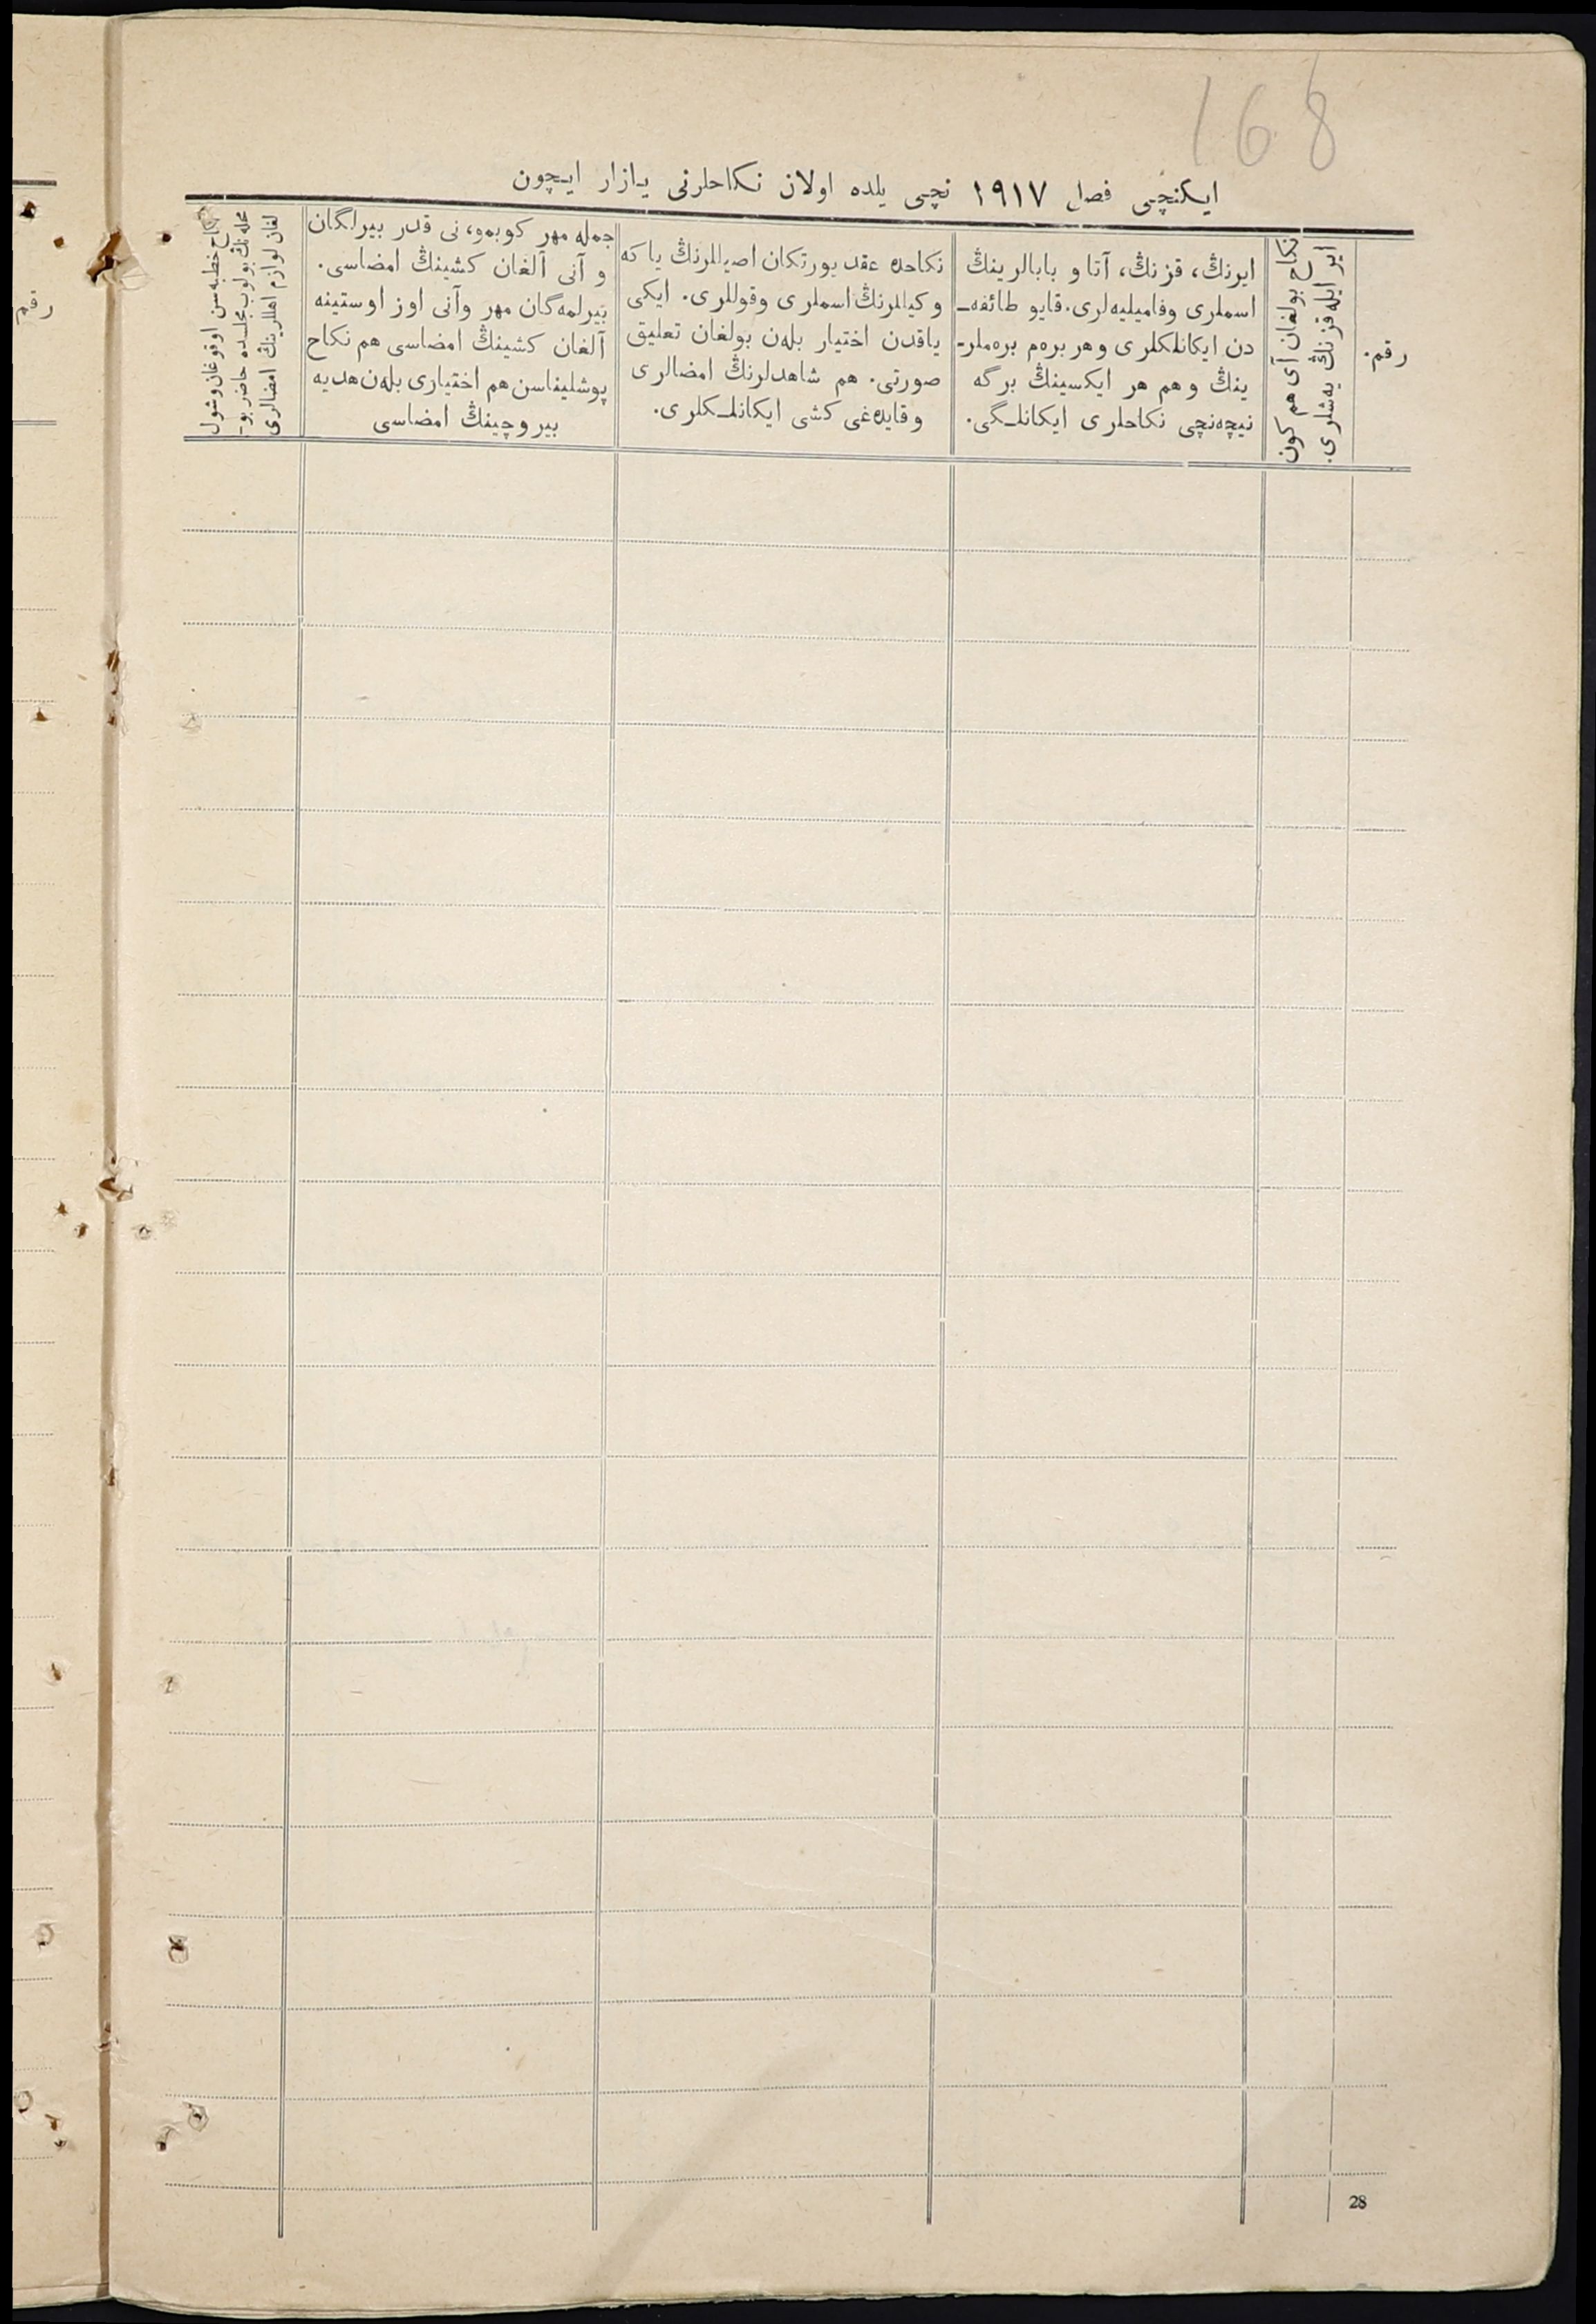 168
ايكنچی فصل ١٩١٧ نچی يلده اولان نكاحلرنی يازار ايچون
رقم.
نكاح بولغان آی هم كون
اير ايله قزنڭ يه‌شلری.
ايرنڭ، قزنڭ، آتا و بابالرينڭ
اسملری وفاميليه‌لری. قايو طائفه‌ـ
دن ايكانلكلری وهر بره‌م بره‌ملر-
ينڭ وهم هر ايكسينڭ برگه
نيچه‌نچی نكاحلری ايكانلـگی.
نكاحده عقد يورتكان اصيللرنڭ ياكه
وكيللرنڭ اسملری وقوللری. ايكی
ياقدن اختيار بله‌ن بولغان تعليق
صورتی. هم شاهدلرنڭ امضالری
وقايده‌غی كشی ايكانلـكلری.
جمله مهر كوبمو، نی قدر بيرلگان
و آنی آلغان كشينڭ امضاسی.
بيرلمه‌گان مهر وآنی اوز اوستينه
آلغان كشينڭ امضاسی هم نكاح
پوشليناسن هم اختياری بله‌ن هديه
بيروچينڭ امضاسی
نكاح خطبه‌سن اوقوغان وشول
محله‌نڭ بولوب مجلسده حاضر بو-
لغان لوازم اهللرينڭ امضالری
رقم
28